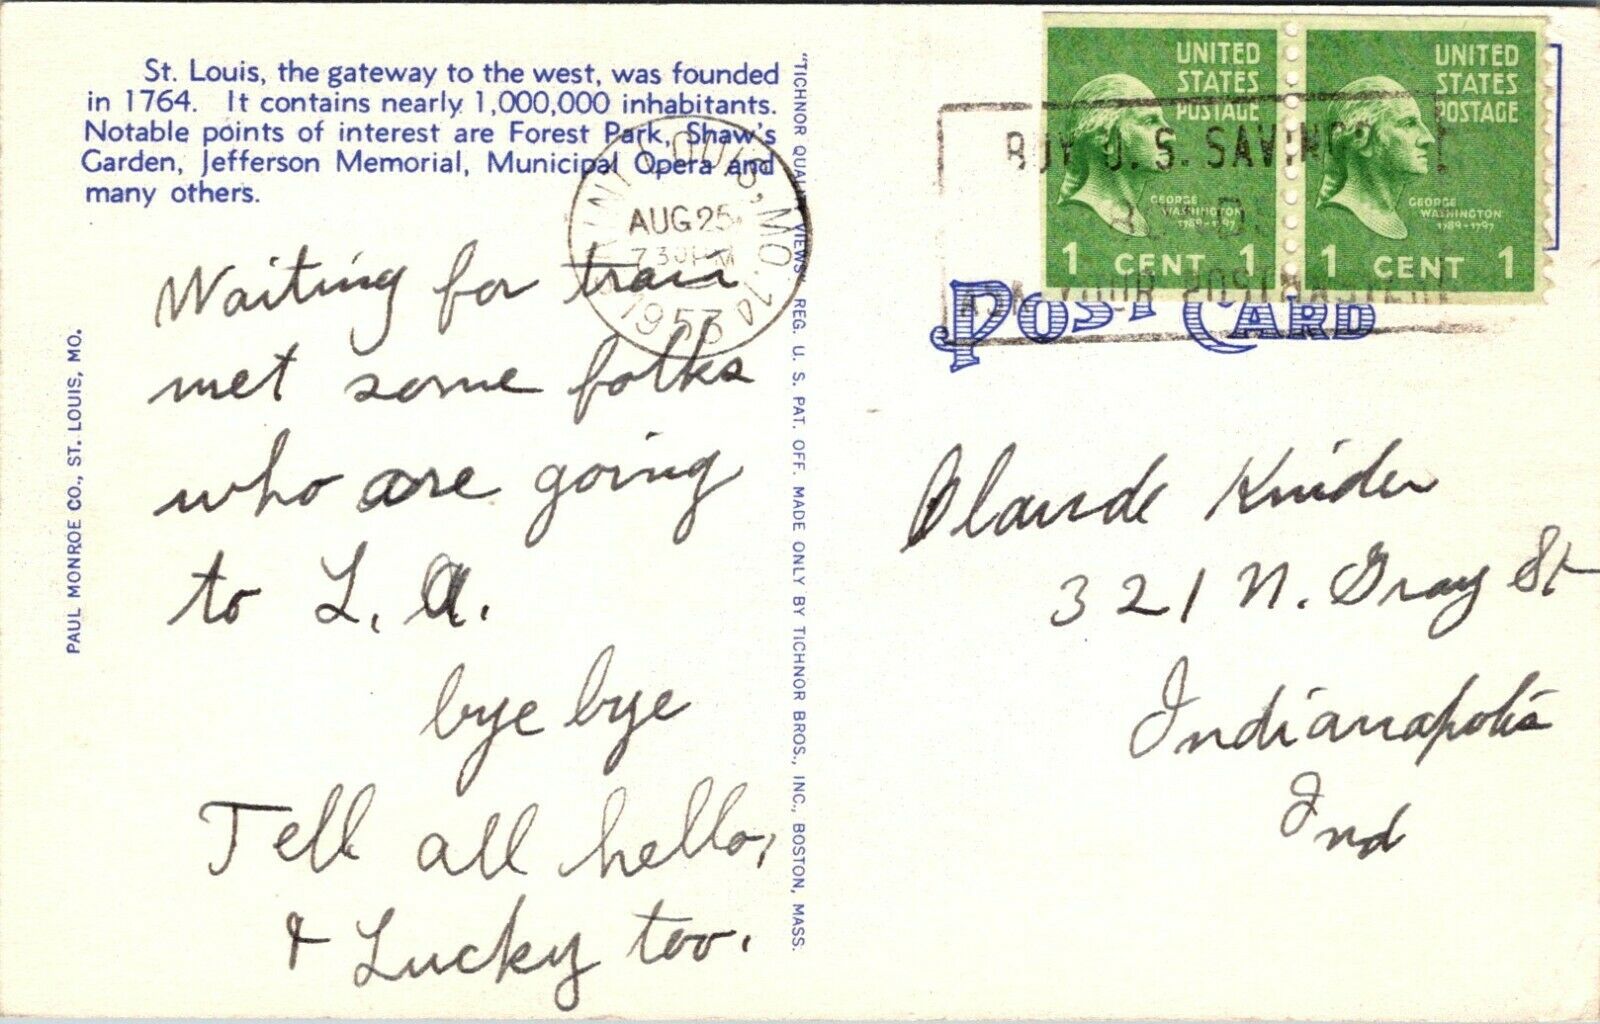 St. Louis, the gateway to the west, was founded
in 1764. It contains nearly 1,000,000 inhabitants.
Notable points of interest are Forest Park, Shaw's
Garden, Jefferson Memorial, Municipal Opera and
many others.
Waiting for train
met some folks
who are going
to L.A.
bye bye
Tell all hello,
& Lucky too.
PAUL MONROE CO., ST. LOUIS, MO.
"TICHNOR QUALITY VIEWS" REG. U. S. PAT. OFF. MADE ONLY BY TICHNOR BROS., INC., BOSTON, MASS.
SAINT LOUIS, MO.
AUG 25
7 30 PM
1953
BUY U.S. SAVINGS
ASK YOUR POSTMASTER
UNITED
STATES
POSTAGE
GEORGE
WASHINGTON
1789-1797
1 CENT 1
UNITED
STATES
POSTAGE
GEORGE
WASHINGTON
1789-1797
1 CENT 1
POST CARD
Claude Kinder
321 N. Gray St
Indianapolis
Ind